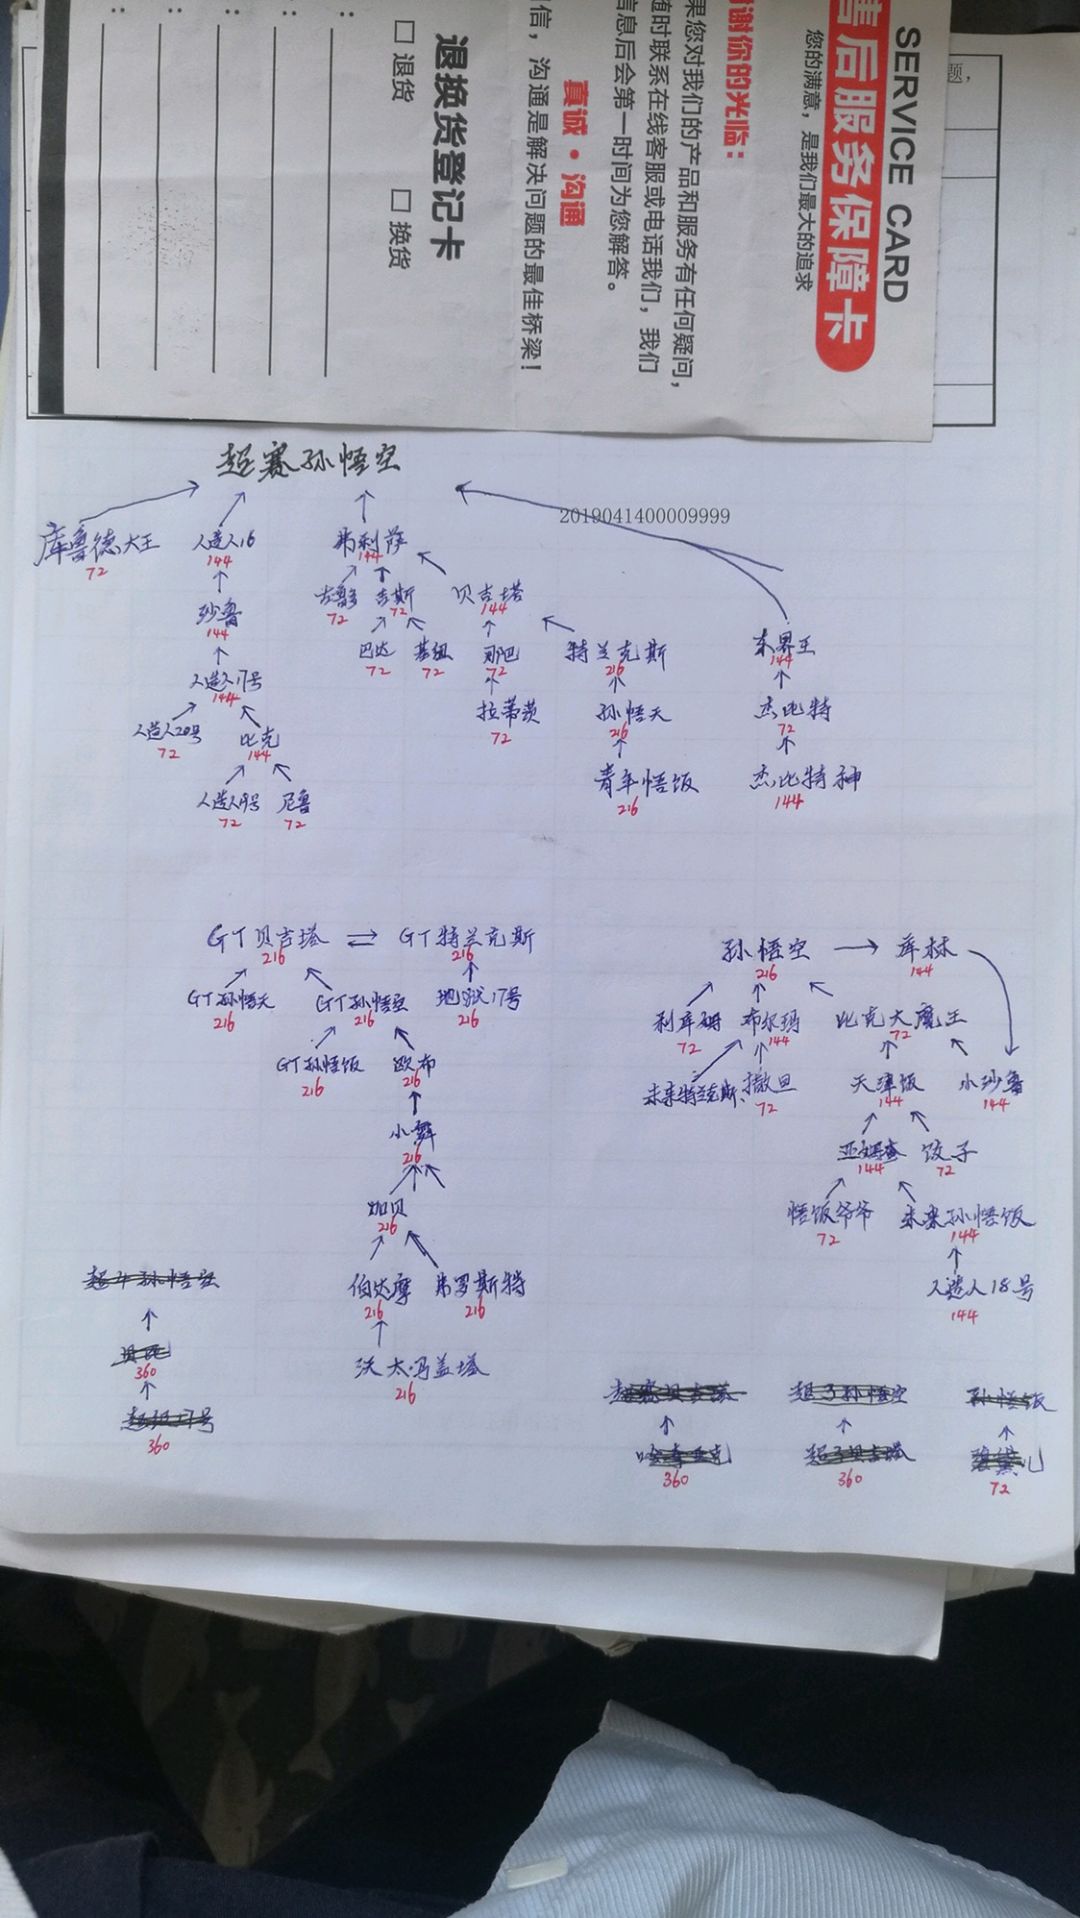 SERVICE CARD
售后服务保障卡
您的满意，是我们最大的追求
谢你的光临：
果您对我们的产品和服务有任何疑问，
随时联系在线客服或电话我们，我们
信息后会第一时间为您解答。
真诚·沟通
信，沟通是解决问题的最佳桥梁！
退换货登记卡
□ 退货 □ 换货
题，
超赛孙悟空
2019041400009999
库鲁德大王 人造人16 弗利萨
72 144 144
古鲁多 吉斯 贝吉塔
72 72 144
沙鲁
144
巴达 基纽 那巴 特兰克斯 东界王
72 72 72 216 144
人造人17号
144
拉蒂茨 孙悟天 杰比特
72 216 72
人造人20号 比克
72 144
青年悟饭 杰比特神
216 144
人造人19号 尼鲁
72 72
GT贝吉塔 GT特兰克斯
216 216
GT孙悟天 GT孙悟空 地狱17号
216 216 216
GT孙悟饭 欧布
216 216
小舞
216
加贝
216
伯达摩 弗罗斯特
216 216
沃太玛盖塔
216
孙悟空 库林
216 144
利库姆 布尔玛 比克大魔王
72 144 72
未来特兰克斯、撒旦 天津饭 小沙鲁
72 144 144
亚姆查 饺子
144 72
悟饭爷爷 未来孙悟饭
72 144
人造人18号
144
超4孙悟空
360
超级17号
360
超赛贝吉塔 超3孙悟空 孙悟饭
超3贝吉塔
360 360 72